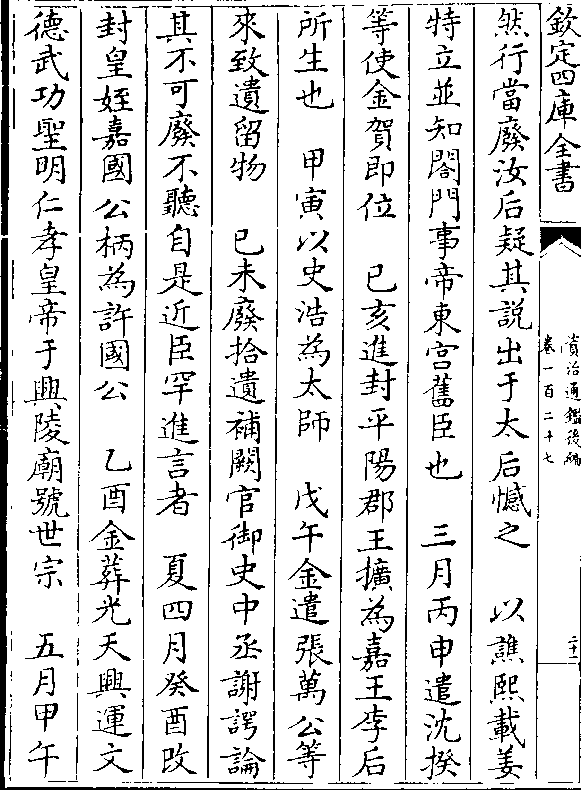 欽定四庫全書
資治通鑑後編
卷一百二十七
二十二
然行當廢汝后疑其説出于太后憾之　以譙熙載姜
特立並知閤門事帝東宮舊臣也　三月丙申遣沈揆
等使金賀即位　己亥進封平陽郡王擴為嘉王李后
所生也　甲寅以史浩為太師　戊午金遣張萬公等
來致遺留物　己未廢拾遺補闕官御史中丞謝諤論
其不可廢不聽自是近臣罕進言者　夏四月癸酉改
封皇姪嘉國公柄為許國公　乙酉金葬光天興運文
德武功聖明仁孝皇帝于興陵廟號世宗　五月甲午